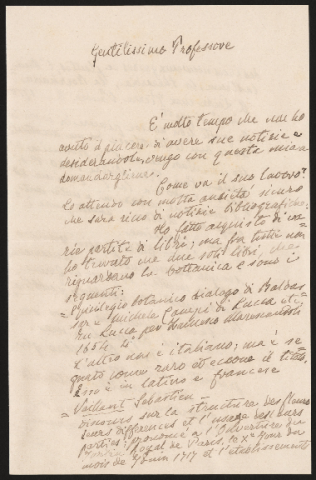 Gentilissimo Professore
È molto tempo che non ho
avuto il piacere di avere sue notizie e
desiderandole, vengo con questa mia a
domandargliene.
Come va il suo lavoro?
Lo attendo con molta ansietà sicuro
che sarà ricco di notizie bibliografiche.
Ho fatto acquisto di va-
rie partite di libri; ma fra tutti non
ho trovato che due soli libri, che
riguardano la botanica e sono i
seguenti:
= botanico dialogo di Baldas
sar e Michele Campi di Lucca etc.
In Lucca per Marescandoli
1654 4°
L'altro non è italiano; ma è se
gnato come raro ed eccone il titolo.
Esso è in latino e francese
= Vaillant Sebastien =
Discours sur la structure des fleurs
leurs differences et l'usage de leurs
parties; prononcé à l'Ouverture du
Jardin Royal de Paris, le Xe Jour du
mois de Juin 1717 et l'etablissement